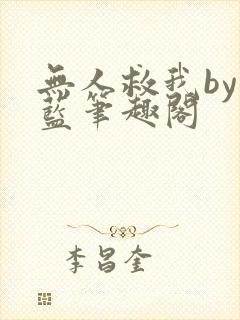 無人救我by
藍筆趣閣
李昌奎